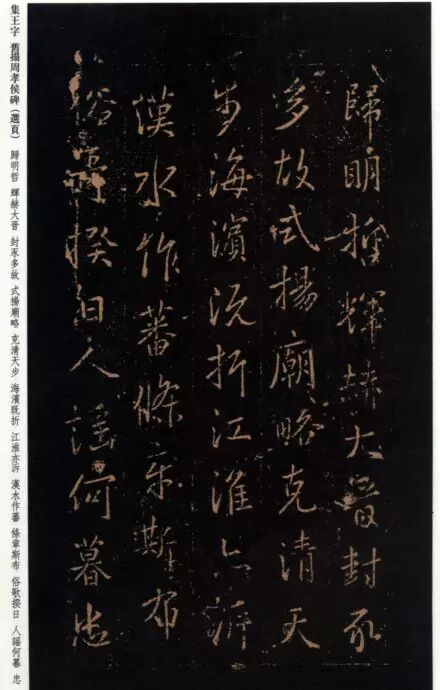 歸明哲輝赫大晉封豕
多故式揚廟略克清天
步海濱既折江淮亦泝
漢水作蕃條章斯布
俗歌揆日人謡何暮忠
集王字 舊搨周孝侯碑（選頁） 歸明哲 輝赫大晋 封豕多故 式揚廟略 克清天步 海濱既折 江淮亦泝 漢水作蕃 條章斯布 俗歌揆日 人謡何暮 忠